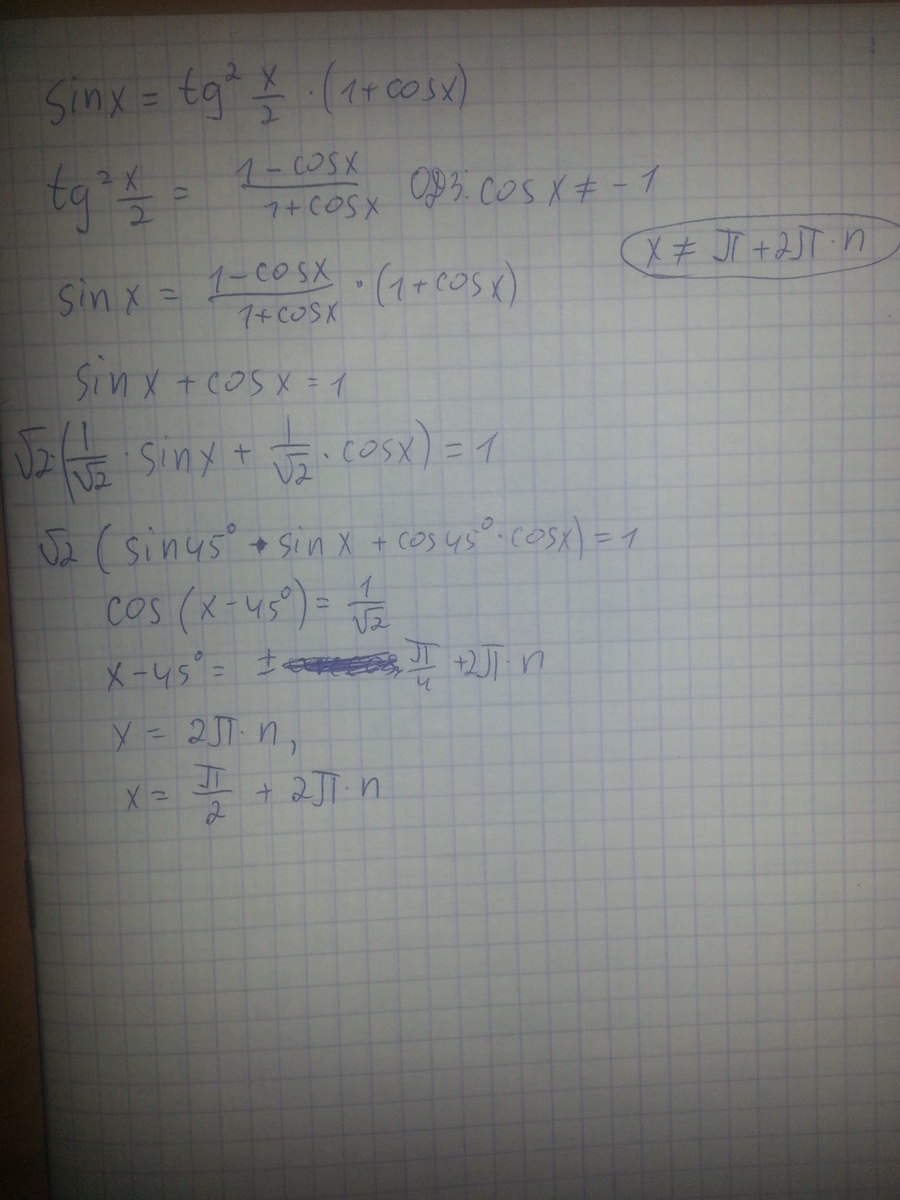 sin x = tg² x/2 · (1+cosx)
tg² x/2 = (1-cosx)/(1+cosx) ОДЗ: cos x ≠ -1
x ≠ π + 2π · n
sin x = (1-cosx)/(1+cosx) · (1+cosx)
sin x + cos x = 1
√2·(1/√2 · sin x + 1/√2 · cosx) = 1
√2 (sin45° · sin x + cos45° · cosx) = 1
cos (x-45°) = 1/√2
x-45° = ± π/4 + 2π · n
x = 2π · n,
x = π/2 + 2π · n